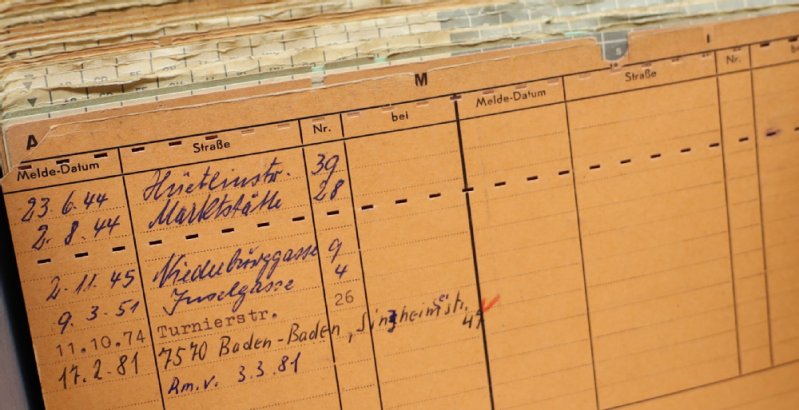 A M S I
Melde-Datum Straße Nr. bei Melde-Datum Straße Nr. be
23.6.44 Hüetlinstr. 39
2.8.44 Marktstätte 28
2.11.45 Niederburggasse 9
9.3.51 Inselgasse 4
11.10.74 Turnierstr. 26
17.2.81 7570 Baden-Baden, Sinzheimerstr. 47
Rm.v. 3.3.81